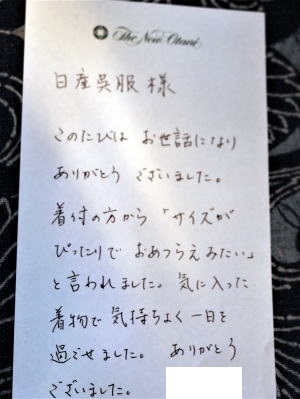 The New Otani
日産呉服様
このたびは お世話になり
ありがとう ございました。
着付の方から「サイズが
ぴったりで おあつらえみたい」
と言われました。気に入った
着物で 気持ちよく 一日を
過ごせました。 ありがとう
ございました。